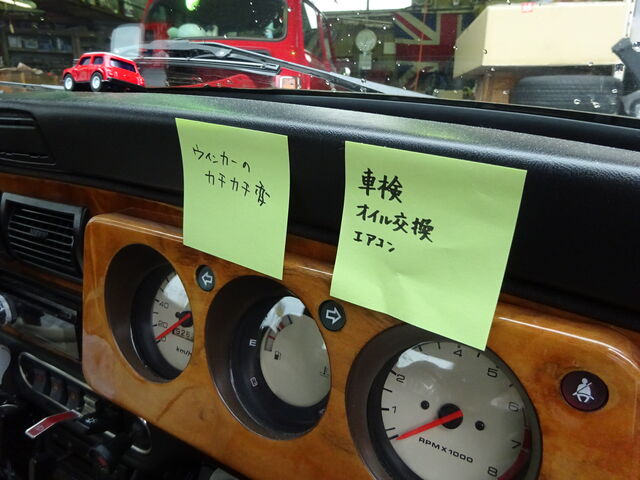 ウィンカーの
カチカチ変
車検
オイル交換
エアコン
40
20
km/h
E
1
2
4
5
6
7
8
RPM×1000